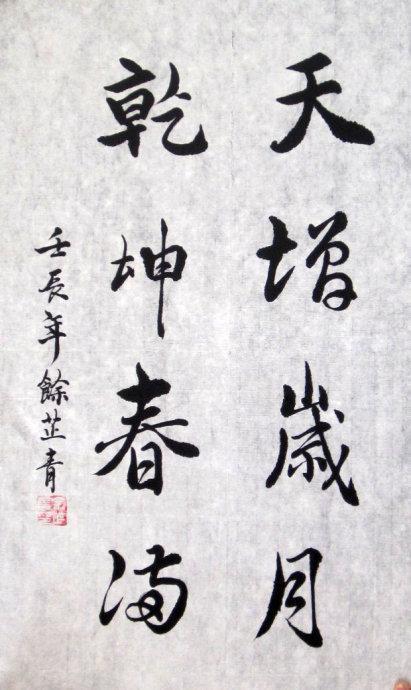 天增歲月
乾坤春满
壬辰年餘芷青